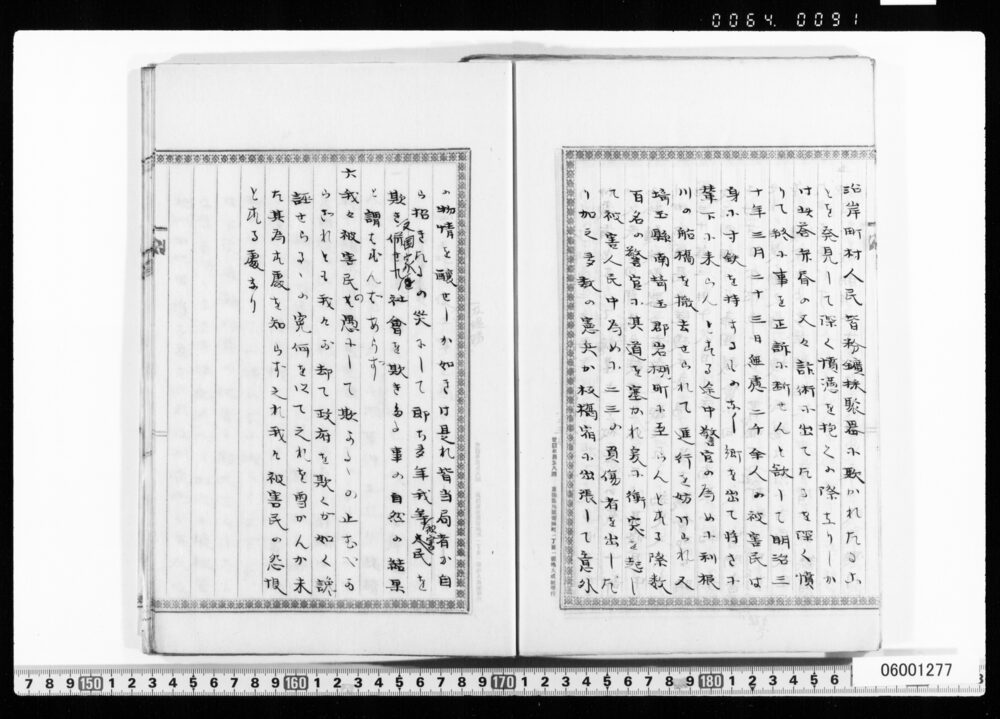 0064 0091
沿岸町村人民皆粉鑛採聚器ニ欺かれたるこ
とを発見して深く憤懣を抱くの際なりしか
は政府昇君の又々詐術に出てたるを深く憤
りて終に事を正訴に断せんと欲して明治三
十年三月二十三日無慮二千余人の被害民は
身に寸鉄を持するものなし郷を出て将さに
輦下に来らんとする途中警官の為めに利根
川の船橋を撤去せられて進行を妨けられ又
埼玉縣南埼玉郡岩槻町に至らんとする際数
百名の警官に其道を塞かれ爰に衝突を起し
て被害人民中為めに二三の負傷者を出した
り加之多数の憲兵か板橋宿に出張して意外
の物情を醸せしか如きは是れ皆当局者か自
ら招きたるの災にして即ち多年我等被害人民を
欺き又国家を偏せす社會を欺きたる事の自然の結果
と謂はさんはあらす
六我々被害民の愚にして欺かるゝの止むへか
らされとも我々か却て政府を欺くか如く誣
誣せらるゝの冤何を以て之れを雪かんか未
た其為す處を知らす之れ我々被害民の怨恨
とする處なり
7 8 9 150 1 2 3 4 5 6 7 8 9 160 1 2 3 4 5 6 7 8 9 170 1 2 3 4 5 6 7 8 9 180 1 2 3 4 5 6
06001277